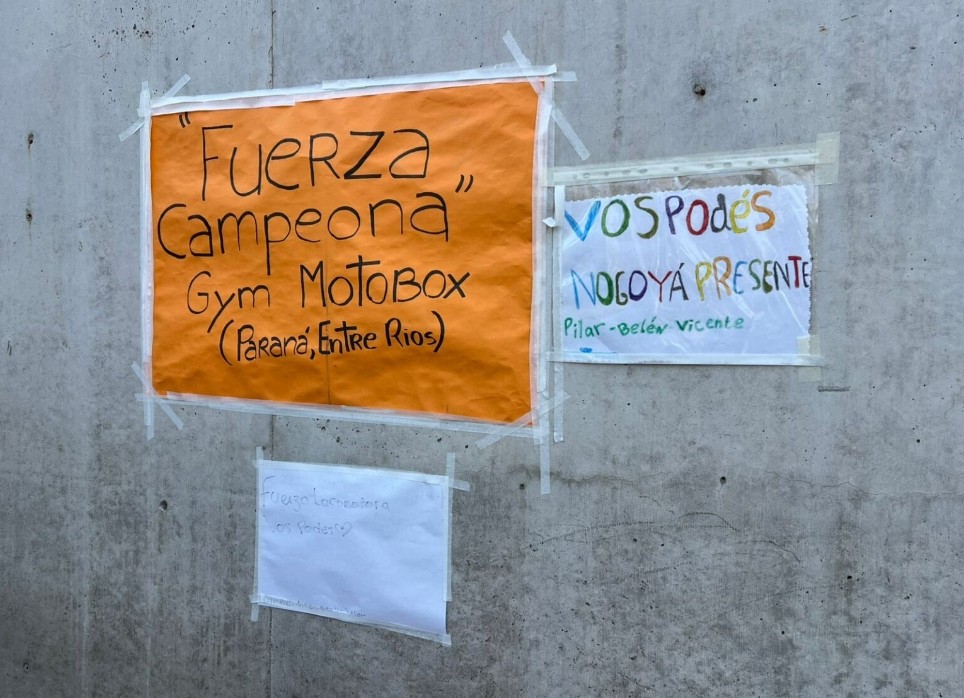 "Fuerza
Campeona"
Gym MotoBox
(Paraná, Entre Rios)
VOS Podés
NOGOYÁ PRESENTE
Pilar - Belén Vicente
Fuerza Locomotora